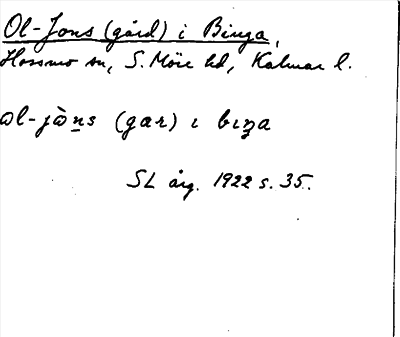 Ol-Jons (gård) i Binga,
Hossmo sn, S. Möre hd, Kalmar l.
ol-jòns (gar) ı bıŋa
SL årg. 1922 s. 35.